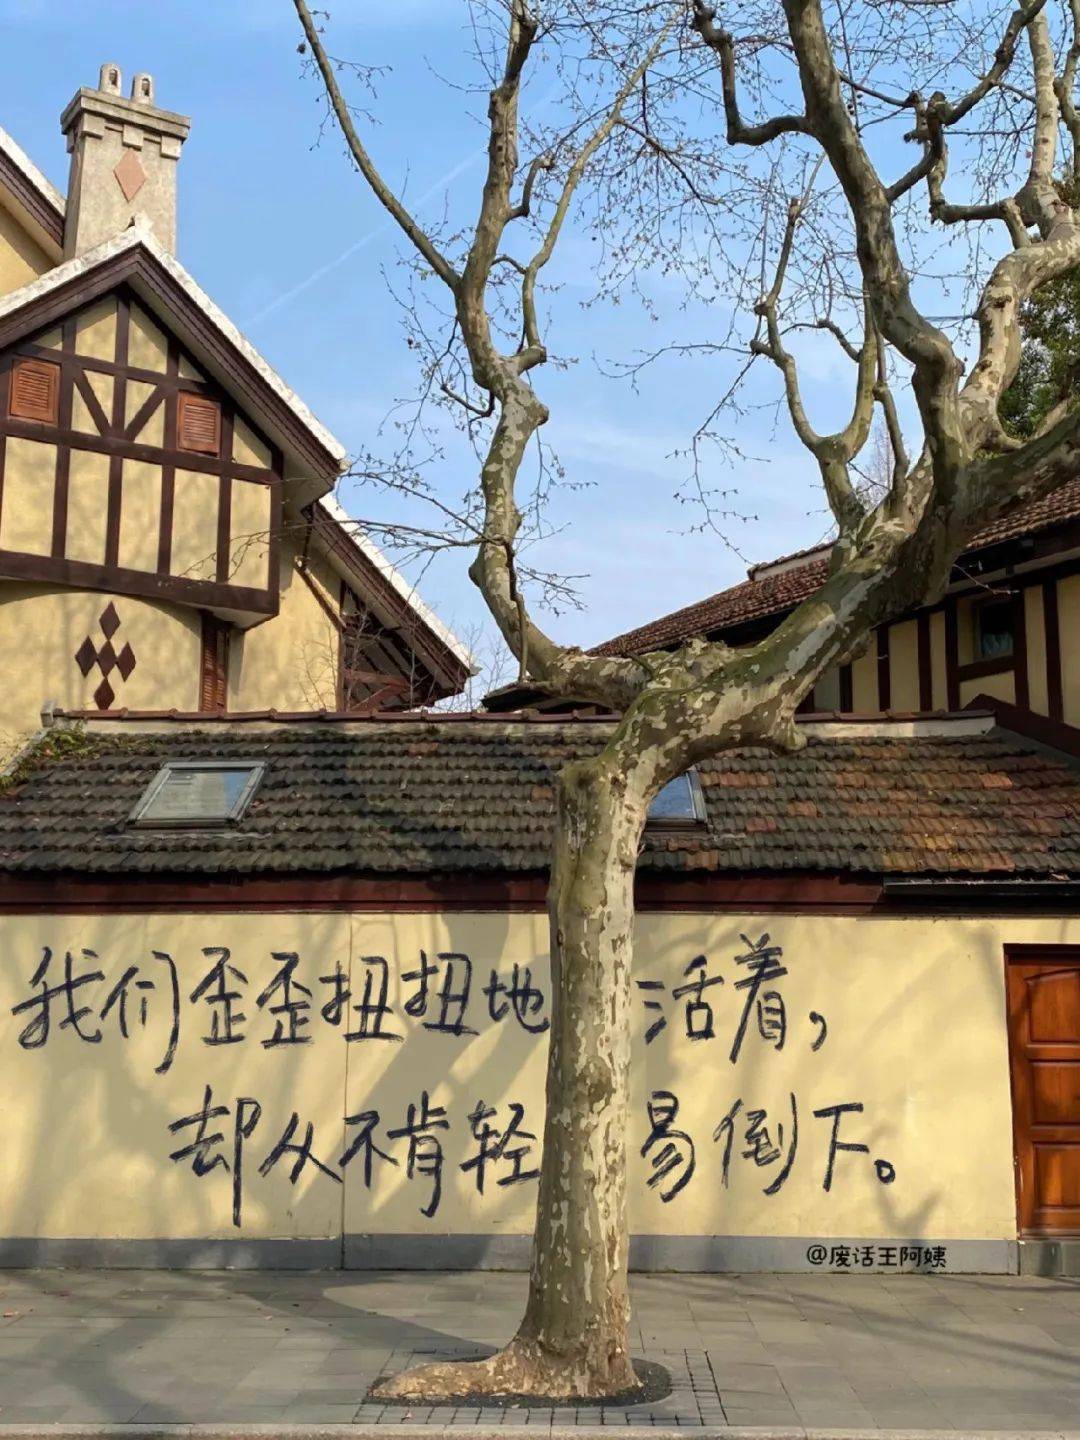 我们歪歪扭扭地活着，
却从不肯轻易倒下。
@废话王阿姨